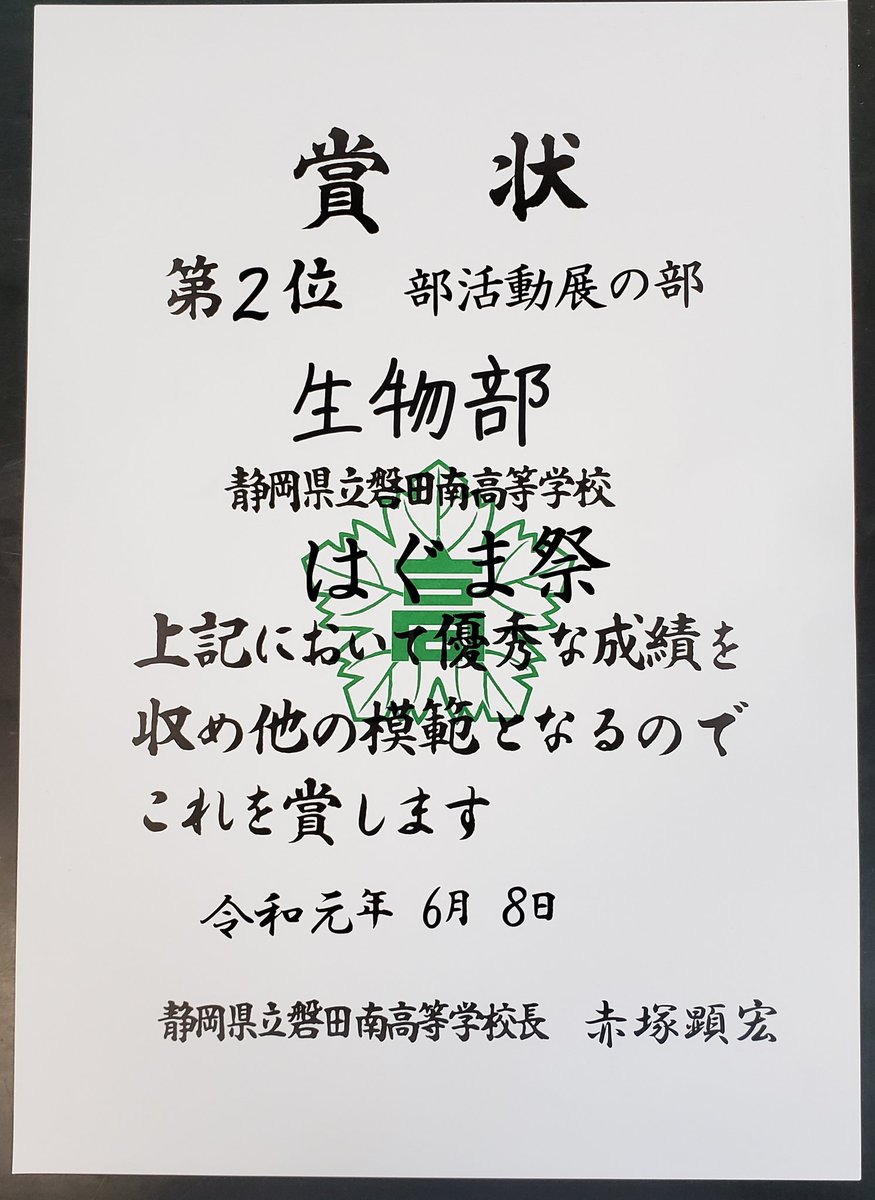 賞状
第2位 部活動展の部
生物部
静岡県立磐田南高等学校
はぐま祭
上記において優秀な成績を
収め他の模範となるので
これを賞します
令和元年 6月 8日
静岡県立磐田南高等学校長 赤塚顕宏